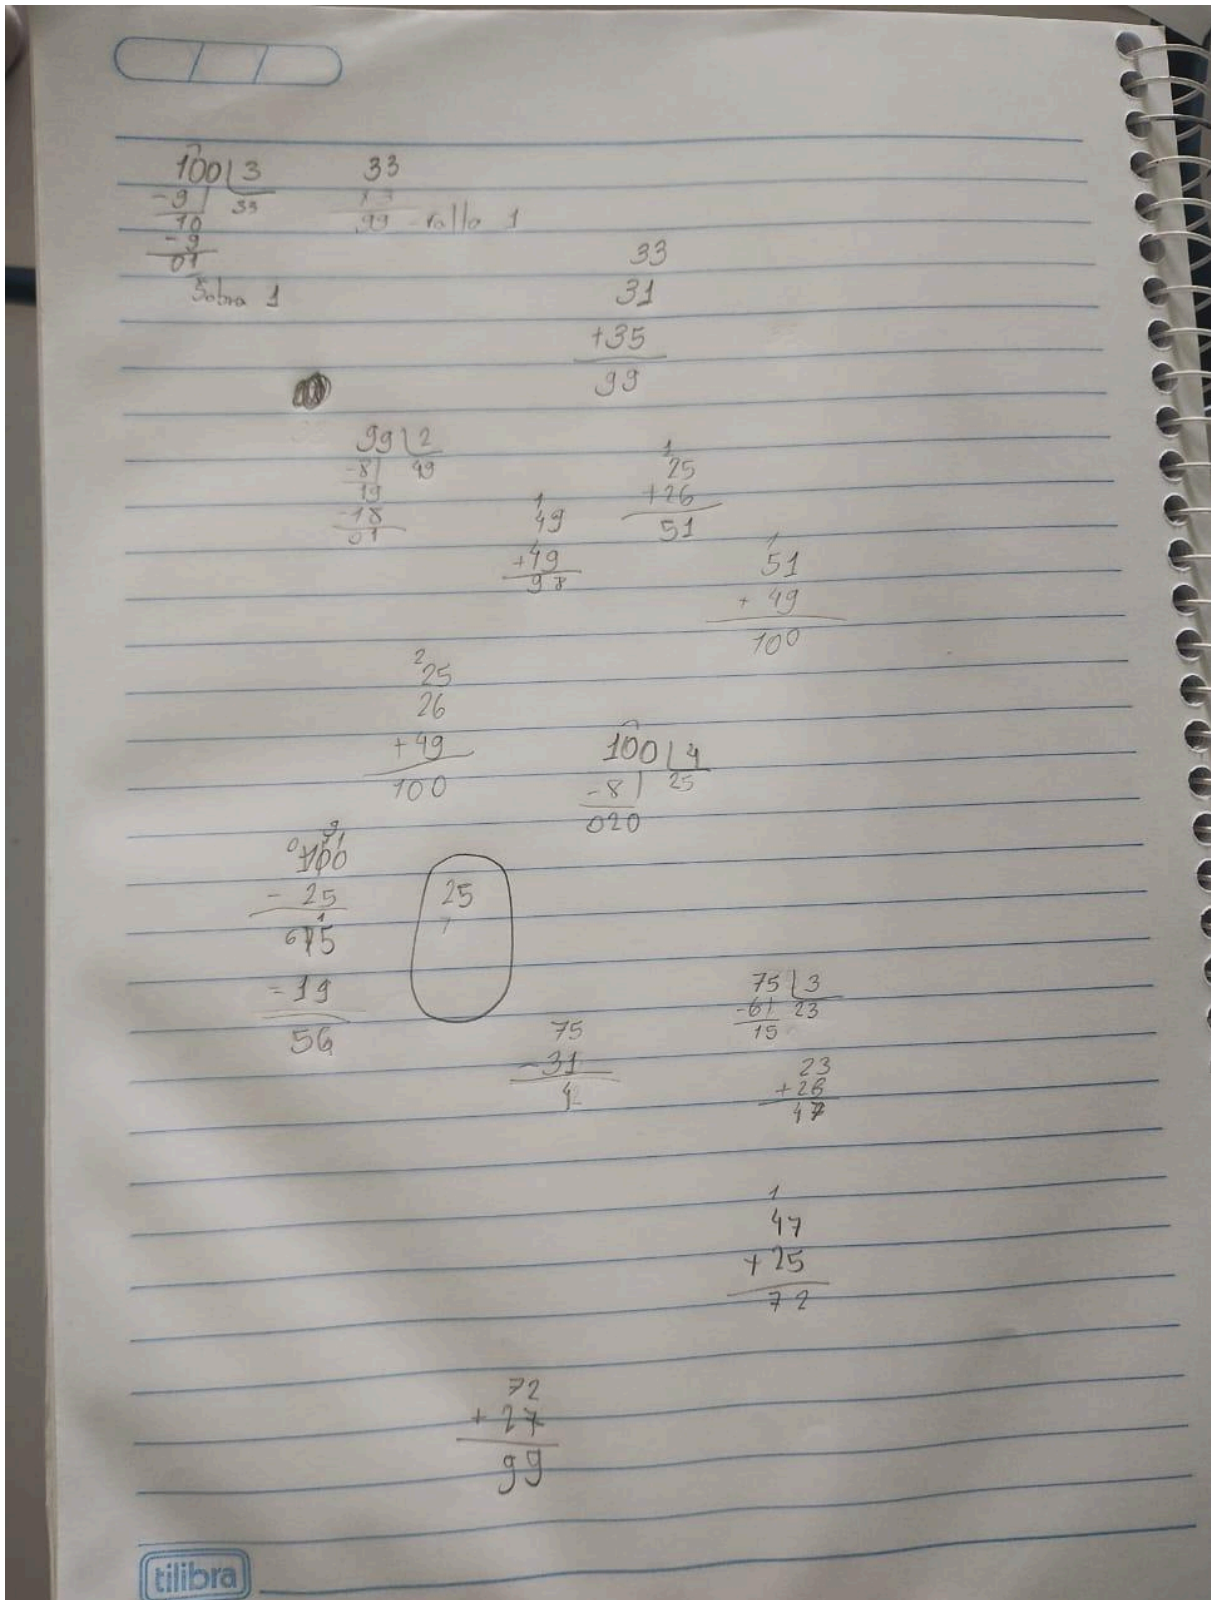 100 3
-9 33
10
-9
01
Sobra 1
33
99 - rallo 1
33
31
+35
99
99 2
-8 49
19
-18
01
1
49
+49
98
1
25
+26
51
1
51
+ 49
100
2
25
26
+49
100
100 4
-8 25
020
100
- 25
75
-19
56
25
75
-31
42
75 3
-6 23
15
23
+26
47
1
47
+ 25
72
72
+ 27
99
tilibra